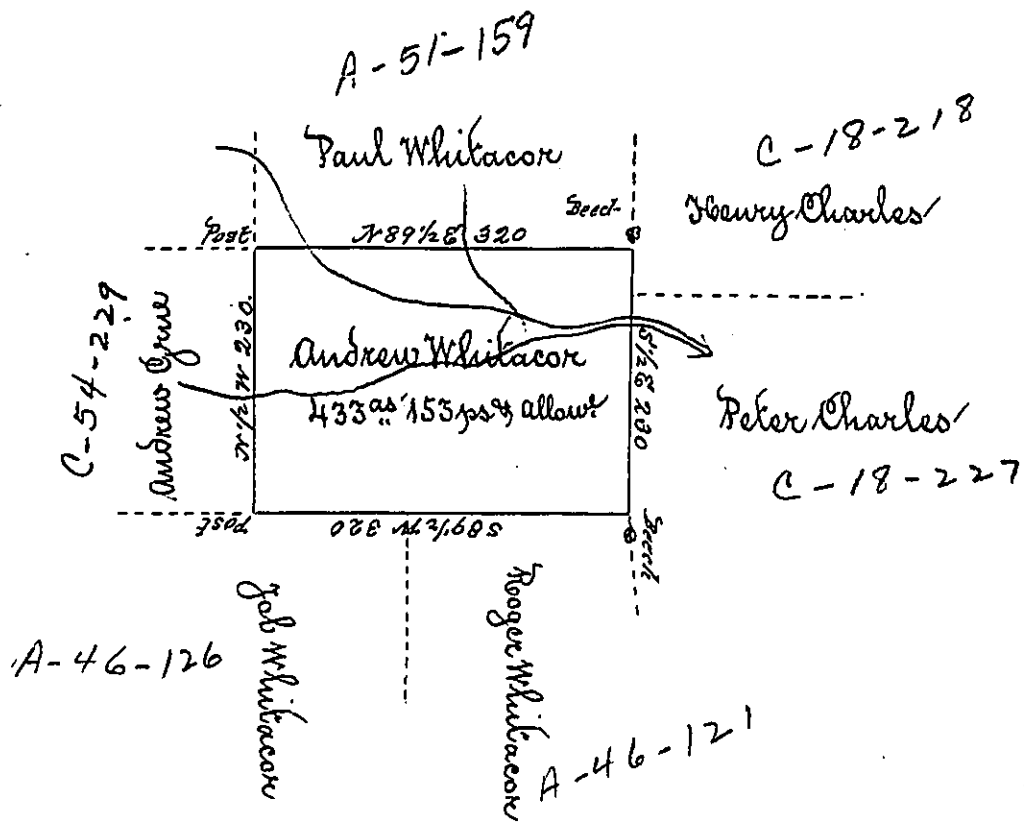 A-51-159
C-18-218
Paul Whitacor
Henry Charles
Post
N 89 1/2 E 320
C-54-229
Andrew
N 1/2 W 230.
Andrew Whitacor
433 as 153 ps & allowe
S 1/2 E 230
Peter Charles
C-18-227
Post
S 89 1/2 W 320
Beech
Job Whitacor
Roger Whitacor
A-46-126
A-46-121